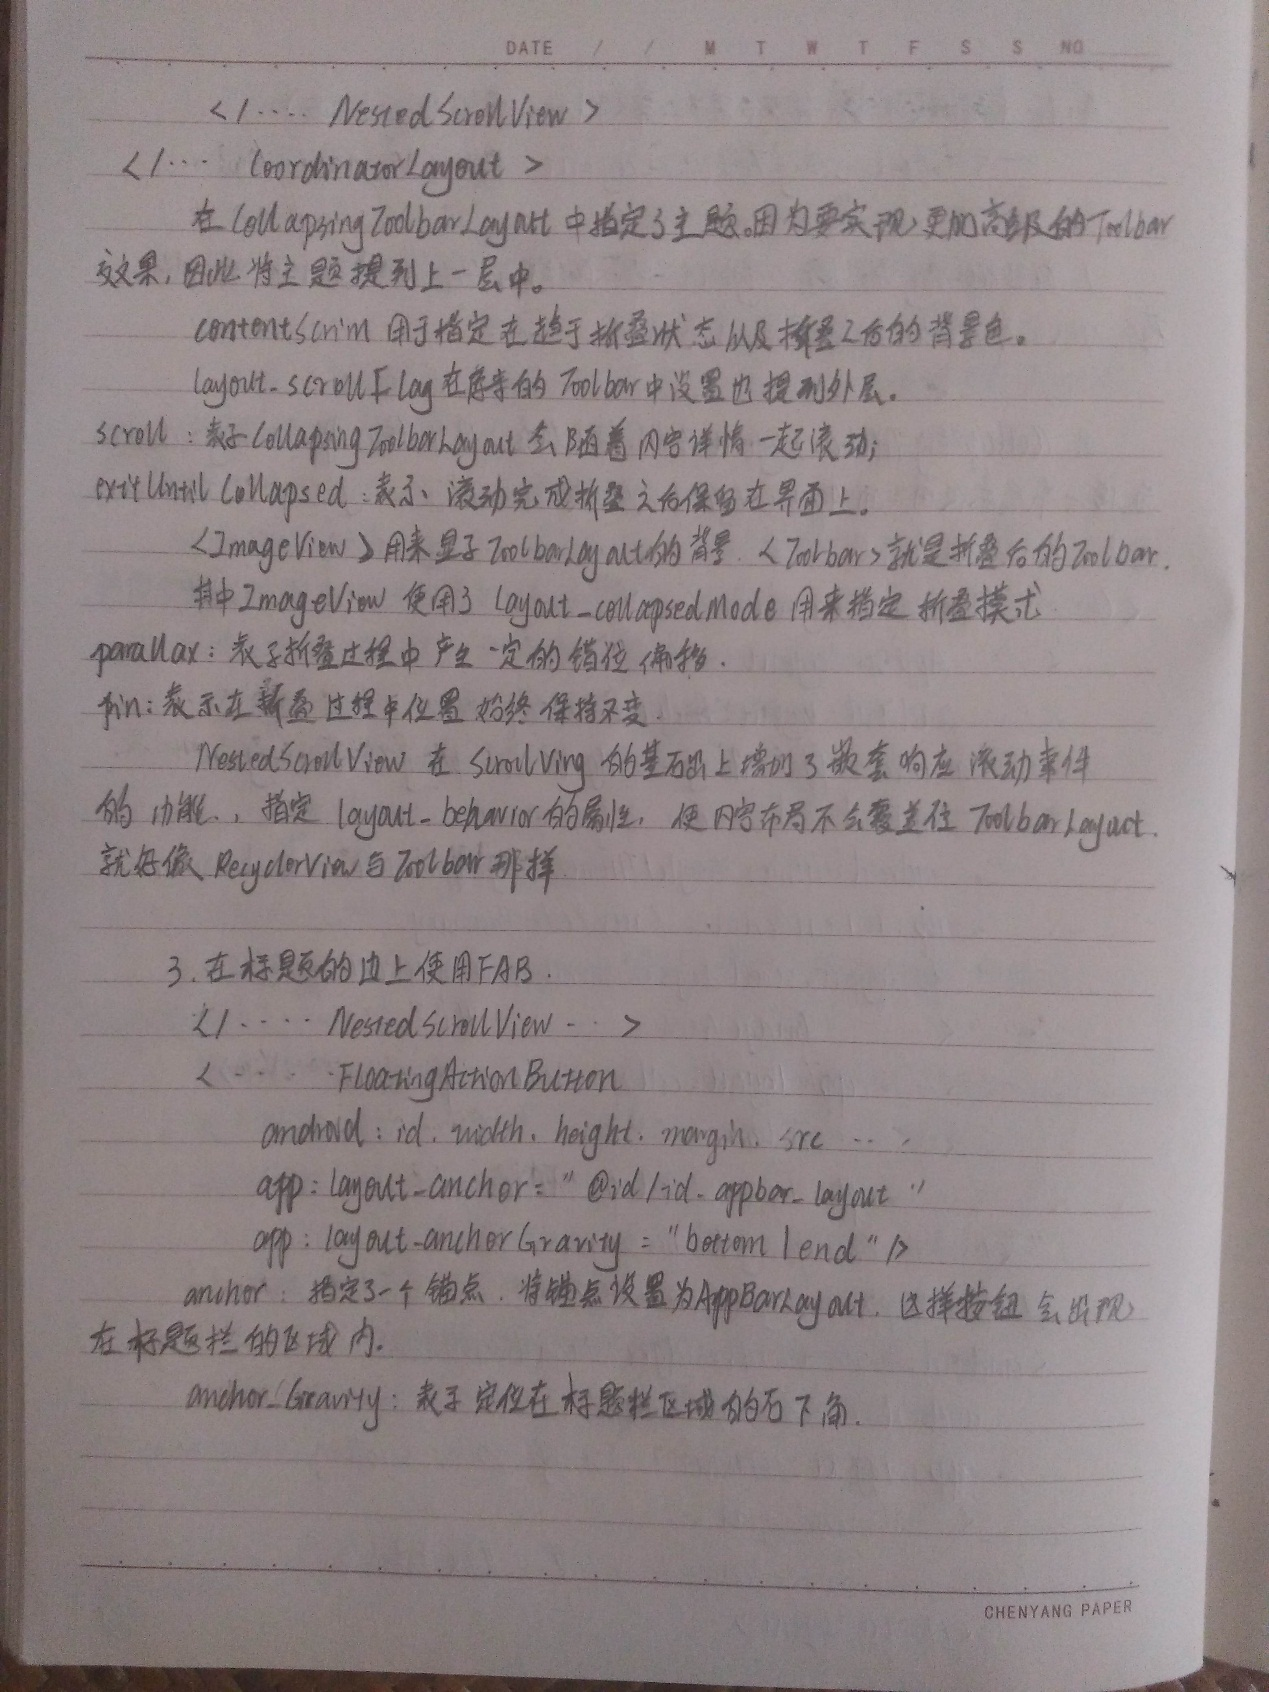 DATE / / M T W T F S S NO
</.... NestedScrollView >
</... CoordinatorLayout >
在CollapsingToolbarLayout中指定了主题。因为要实现更加高级的Toolbar
效果,因此将主题提到上一层中。
contentScrim 用于指定在趋于折叠状态以及折叠之后的背景色。
layout_scrollFlag在原来的Toolbar中设置也提到外层。
scroll:表示CollapsingToolbarLayout会随着内容详情一起滚动;
exitUntilCollapsed:表示、滚动完成折叠之后保留在界面上。
<ImageView>用来显示ToolbarLayout的背景.<Toolbar>就是折叠后的Toolbar.
其中ImageView 使用了 layout_collapsedMode 用来指定折叠模式
parallax:表示折叠过程中产生一定的错位偏移.
pin:表示在折叠过程中位置始终保持不变.
NestedScrollView 在 ScrollVing 的基础上增加了嵌套响应滚动事件
的功能.,指定 layout_behavior的属性,使内容布局不会覆盖住ToolbarLayout.
就好像RecyclerView与Toolbar那样
3.在标题的边上使用FAB.
</.... NestedScrollView ... >
< ..... FloatingActionButton
android:id. width. height. margin. src ...
app:layout_anchor="@id/id_appbar_layout"
app:layout_anchorGravity="bottom|end"/>
anchor:指定了一个锚点.将锚点设置为AppBarLayout.这样按钮会出现
在标题栏的区域内.
anchor_Gravity:表示定位在标题栏区域的右下角.
CHENYANG PAPER